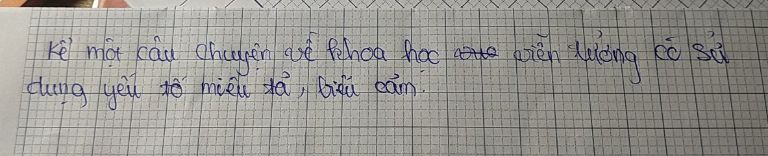 Kể một câu chuyện về khoa học viễn tưởng có sử
dụng yếu tố miêu tả, biểu cảm.